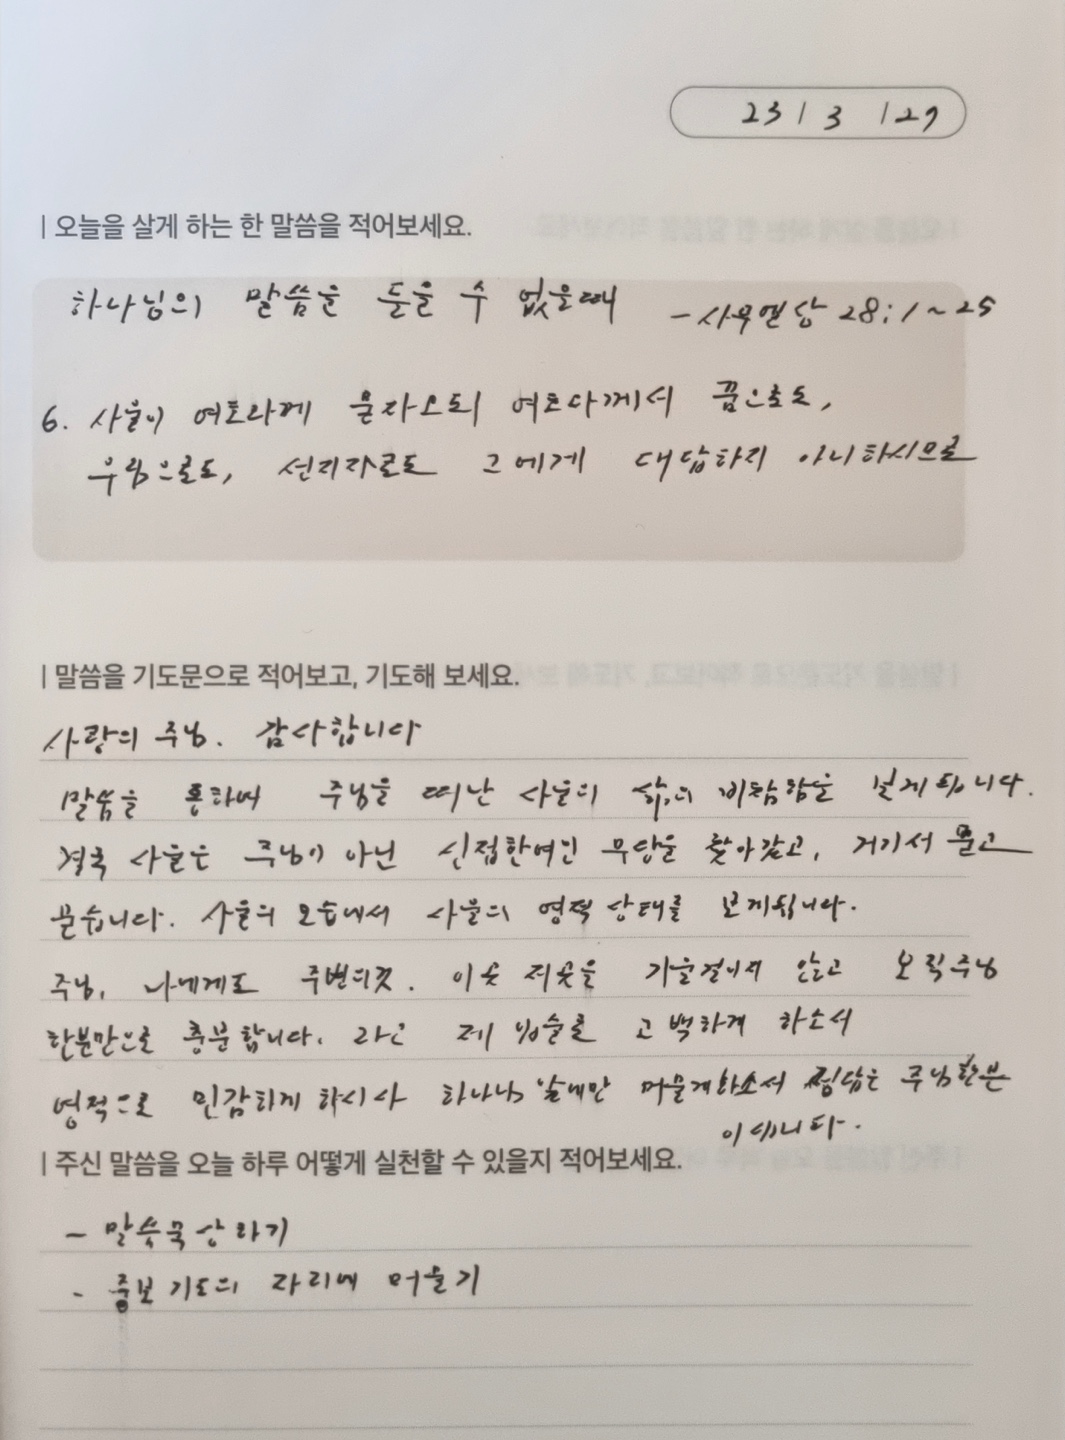 23 / 3 / 27
| 오늘을 살게 하는 한 말씀을 적어보세요.
하나님의 말씀을 듣을 수 없을때 - 사무엘상 28:1~25
6. 사울이 여호와께 묻자오되 여호와께서 꿈으로도,
우림으로도, 선지자로도 그에게 대답하지 아니하시므로
| 말씀을 기도문으로 적어보고, 기도해 보세요.
사랑의 주님. 감사합니다
말씀을 통하여 주님을 떠난 사울의 삶의 비참함을 보게됩니다.
결국 사울은 주님이 아닌 신접한여인 무당을 찾아갔고, 거기서 묻고
묻습니다. 사울의 모습에서 사울의 영적 상태를 보게됩니다.
주님, 나에게도 주변의것. 이곳 저곳을 기울걸이지 않고 오직주님
한분만으로 충분합니다. 라고 제 입술로 고백하게 하소서
영적으로 민감하게 하시사 하나님 날에만 머물게하소서 정답은 주님한분
이십니다.
| 주신 말씀을 오늘 하루 어떻게 실천할 수 있을지 적어보세요.
- 말씀묵상하기
- 중보기도의 자리에 머물기